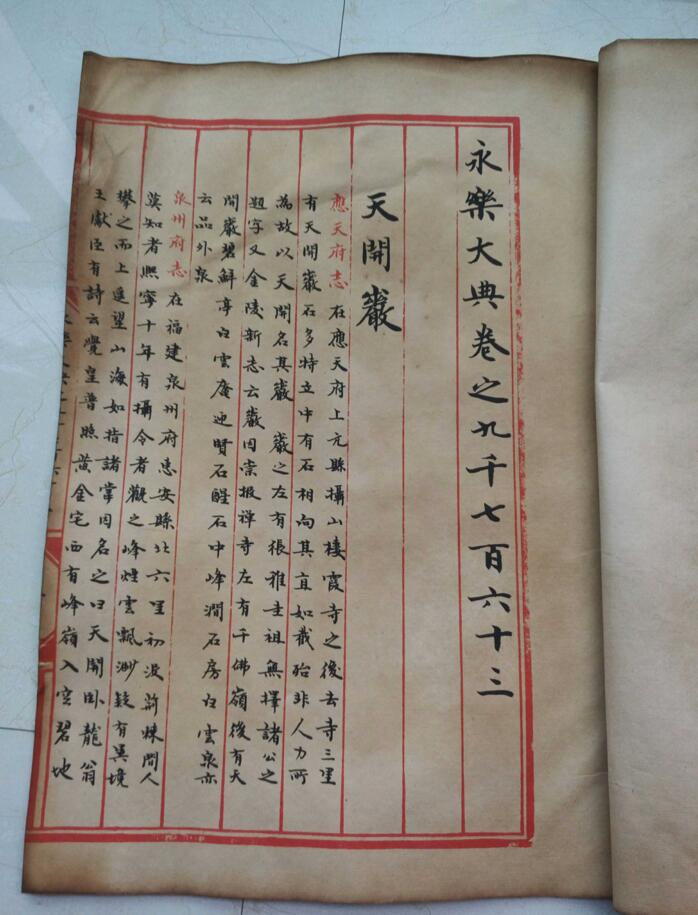 永樂大典卷之九千七百六十三
天開巖
應天府志 在應天府上元縣攝山棲霞寺之後去寺三里
有天開巖石多特立中有石相向其直如截殆非人力所
為故以天開名其巖 巖之左有張稚圭祖無擇諸公之
題字又金陵新志云巖因崇报禅寺左有千佛嶺後有天
開巖碧鮮亭白雲庵迎賢石醒石中峰澗石房白雲泉亦
云品外泉
泉州府志 在福建泉州府惠安縣北六里初没荊棘間人
莫知者熙寧十年有攝令者觀之峰煙雲飄渺疑有異境
攀之而上遥望山海如指諸掌因名之曰天開卧龍翁
王獻臣有詩云覺皇普照黃金宅西有峰嶺入空碧地